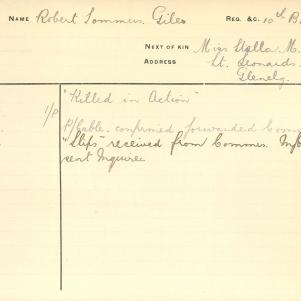 NAME Robert Sommers Giles REG. &C. 10th B
NEXT OF KIN Miss Stella M.
ADDRESS St. Leonards
Glenelg
"Killed in Action"
1/P P/Cable confirmed forwarded Com
"Slips" received from Commee.
sent Inquirer